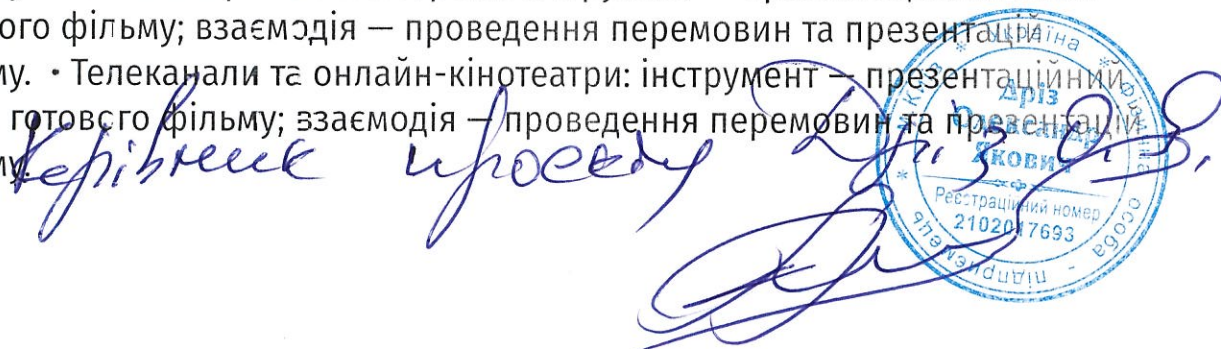 ого фільму; взаємодія — проведення перемовин та презентацій
му. • Телеканали та онлайн-кінотеатри: інструмент — презентаційний
готового фільму; взаємодія — проведення перемовин та презентацій
му.
Керівник проєкту Дріз О.Я.
* Україна * Фізична особа - підприємець * м.Київ
Дріз
Олександр
Якович
Реєстраційний номер
2102017693